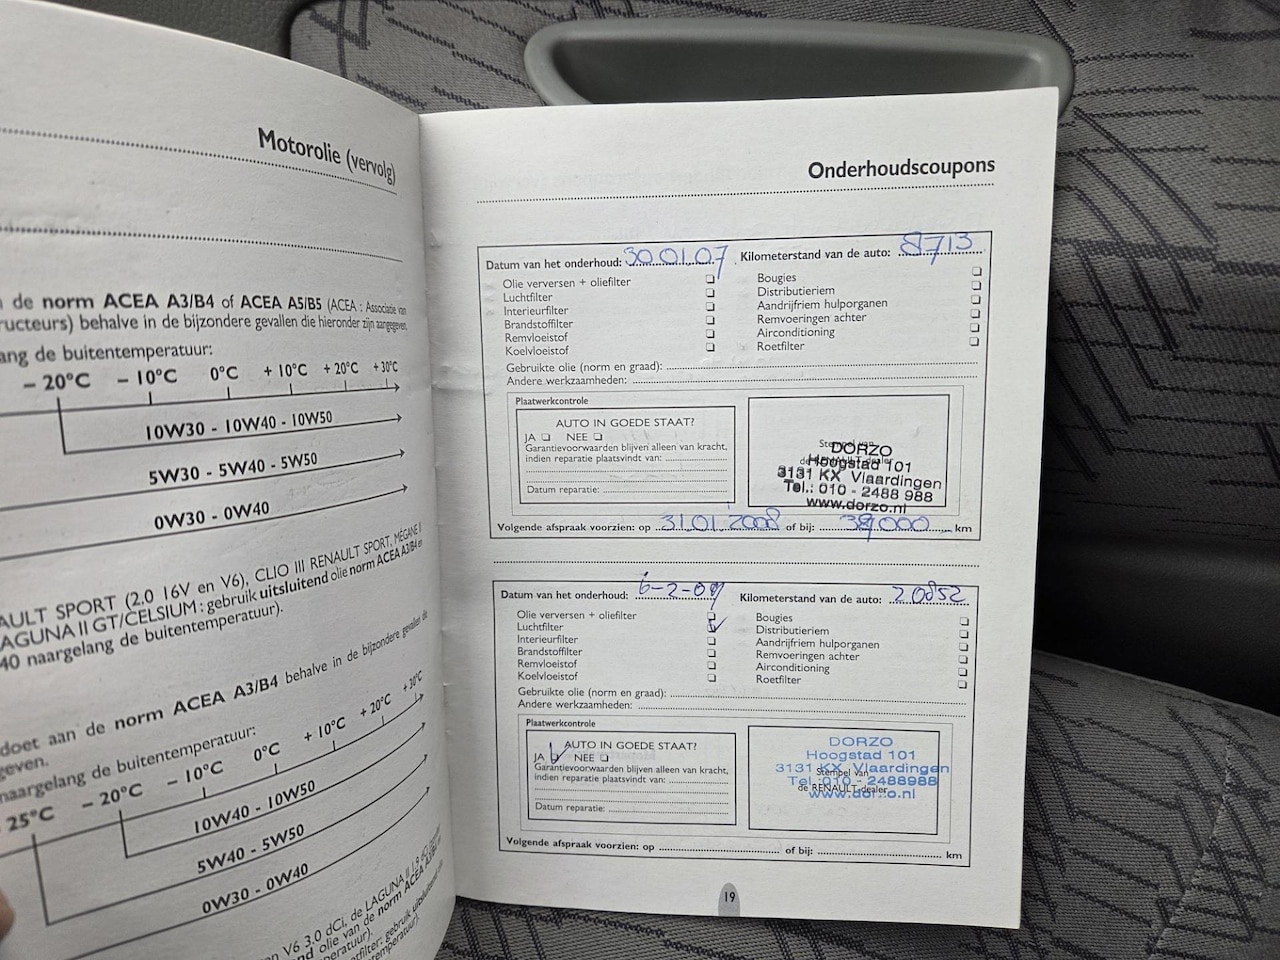 Motorolie (vervolg)
de norm ACEA A3/B4 of ACEA A5/B5 (ACEA : Associatie van
ructeurs) behalve in de bijzondere gevallen die hieronder zijn aangegeven.
ang de buitentemperatuur:
– 20°C – 10°C 0°C + 10°C + 20°C + 30°C
10W30 - 10W40 - 10W50
5W30 - 5W40 - 5W50
0W30 - 0W40
AULT SPORT (2.0 16V en V6), CLIO III RENAULT SPORT, MÉGANE II
AGUNA II GT/CELSIUM : gebruik uitsluitend olie norm ACEA A3/B4 en
40 naargelang de buitentemperatuur).
doet aan de norm ACEA A3/B4 behalve in de bijzondere gevallen die
geven.
naargelang de buitentemperatuur:
25°C – 20°C – 10°C 0°C + 10°C + 20°C + 30°C
10W40 - 10W50
5W40 - 5W50
0W30 - 0W40
V6 3.0 dCi, de LAGUNA II 1.9 dCi
olie van de norm ACEA A3/B4
Onderhoudscoupons
Datum van het onderhoud: 30.01.07 Kilometerstand van de auto: 8713
Olie verversen + oliefilter
Luchtfilter
Interieurfilter
Brandstoffilter
Remvloeistof
Koelvloeistof
Bougies
Distributieriem
Aandrijfriem hulporganen
Remvoeringen achter
Airconditioning
Roetfilter
Gebruikte olie (norm en graad):
Andere werkzaamheden:
Plaatwerkcontrole
AUTO IN GOEDE STAAT?
JA NEE
Garantievoorwaarden blijven alleen van kracht,
indien reparatie plaatsvindt van:
Datum reparatie:
Stempel van
de RENAULT-dealer
DORZO
Hoogstad 101
3131 KX Vlaardingen
Tel.: 010 - 2488 988
www.dorzo.nl
Volgende afspraak voorzien: op 31.01.2008 of bij: 38.000 km
Datum van het onderhoud: 6-2-09 Kilometerstand van de auto: 20852
Olie verversen + oliefilter
Luchtfilter
Interieurfilter
Brandstoffilter
Remvloeistof
Koelvloeistof
Bougies
Distributieriem
Aandrijfriem hulporganen
Remvoeringen achter
Airconditioning
Roetfilter
Gebruikte olie (norm en graad):
Andere werkzaamheden:
Plaatwerkcontrole
AUTO IN GOEDE STAAT?
JA NEE
Garantievoorwaarden blijven alleen van kracht,
indien reparatie plaatsvindt van:
Datum reparatie:
DORZO
Hoogstad 101
3131 KX Vlaardingen
Stempel van
Tel.: 010 - 2488988
de RENAULT-dealer
www.dorzo.nl
Volgende afspraak voorzien: op of bij: km
19